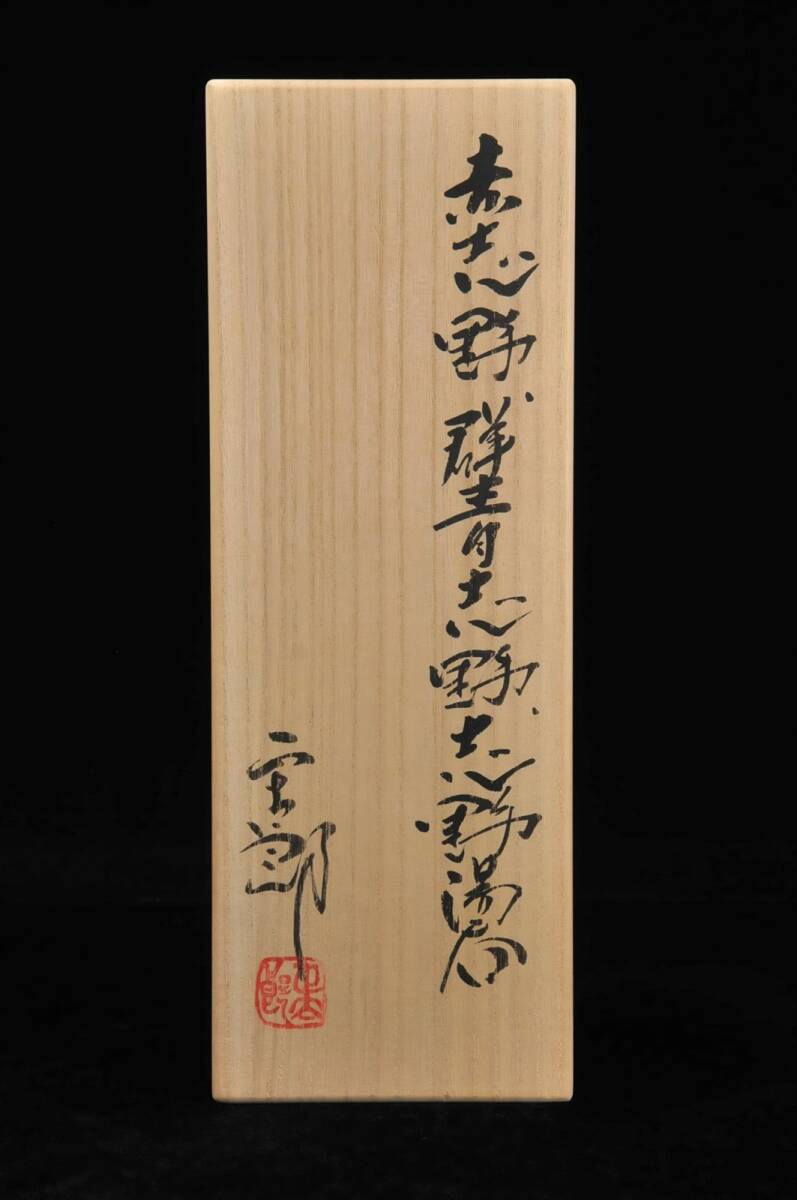 赤志野群青志野志野湯呑
正太郎